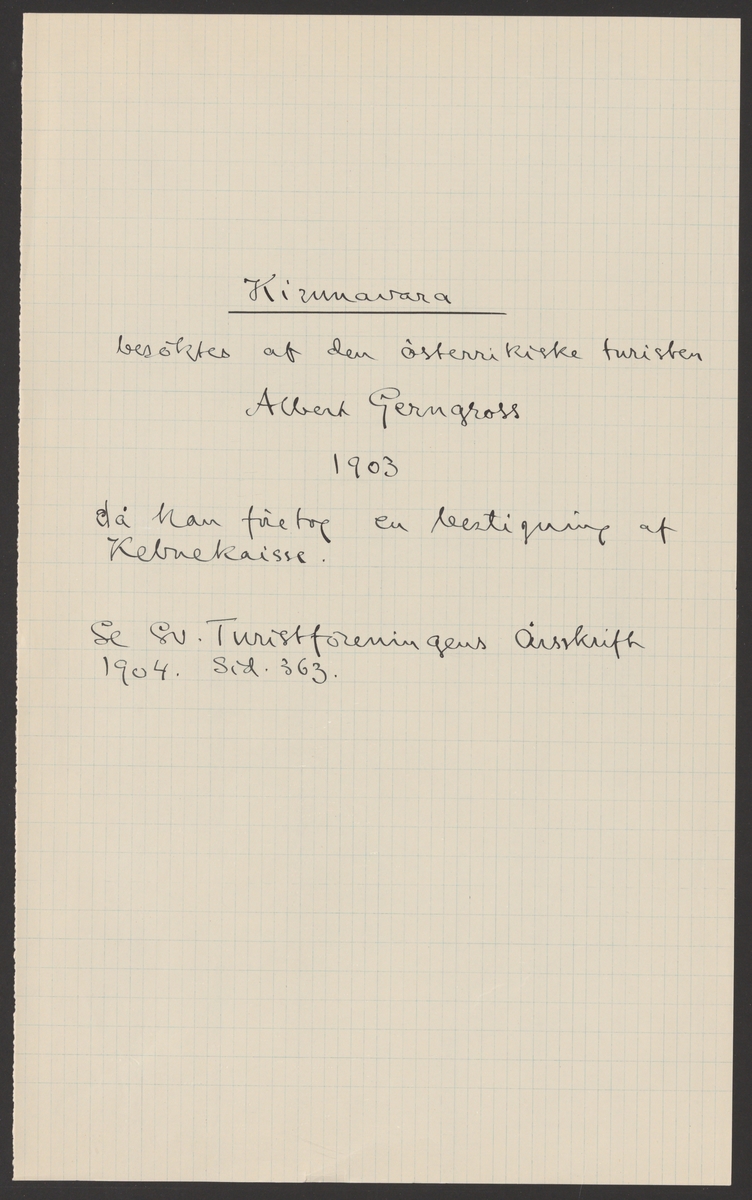 Kirunavara
besöktes af den österrikiske turisten
Albert Gerngross
1903
då han företog en bestigning af
Kebnekaisse.
Se Sv. Turistföreningens Årsskrift
1904. Sid. 363.